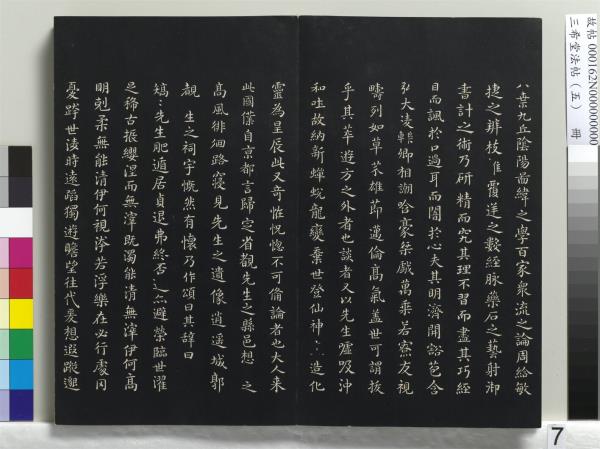 八索九丘陰陽啚緯之學百家衆流之論周給敏
捷之辨枝離覆逆之數經脉藥石之藝射御
書計之術乃研精而究其理不習而盡其巧經
目而諷於口過耳而闇於心夫其明濟開豁苞含
弘大淩轢卿相謿哈豪桀戲萬乘若寮友視
疇列如草芥雄莭邁倫髙氣蓋世可謂拔
乎其萃遊方之外者也談者又以先生噓吸沖
和吐故納新蟬蛻龍變棄世登仙神造化
靈為星辰此又竒恠怳惚不可俻論者也大人来
此國僕自京都言歸定省覩先生之縣邑想之
髙風徘徊路寢見先生之遺像逍遥城郭
覩生之祠宇慨然有懷乃作頌曰其辞曰
矯先生肥遁居貞退弗終否亦避榮臨世濯
足稀古振纓涅而無滓既濁能清無滓伊何髙
明剋柔無能清伊何視洿若浮樂在必行處囚
憂跨世淩時逺蹈獨遊瞻望往代爰想遐蹤邈
故帖000162N000000000
三希堂法帖（五） 冊
7